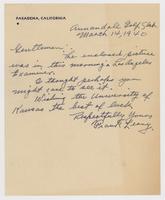 PASADENA, CALIFORNIA
Annandale Golf Club
March 14, 1940
Gentlemen:
The enclosed picture
was in this morning's Los Angeles
Examiner.
I thought perhaps you
might care to see it.
Wishing the University of
Kansas the best of luck
Respectfully Yours
Frank